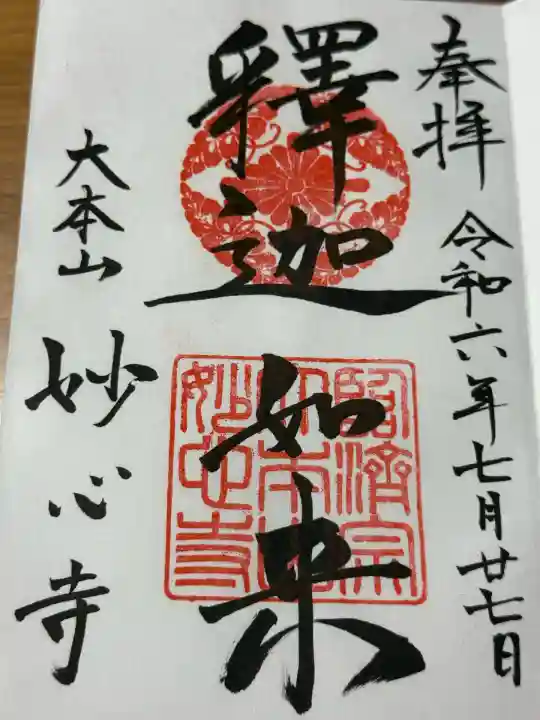 奉拝 令和六年七月廿七日
釋迦如来
大本山 妙心寺
臨済宗
大本山
妙心寺